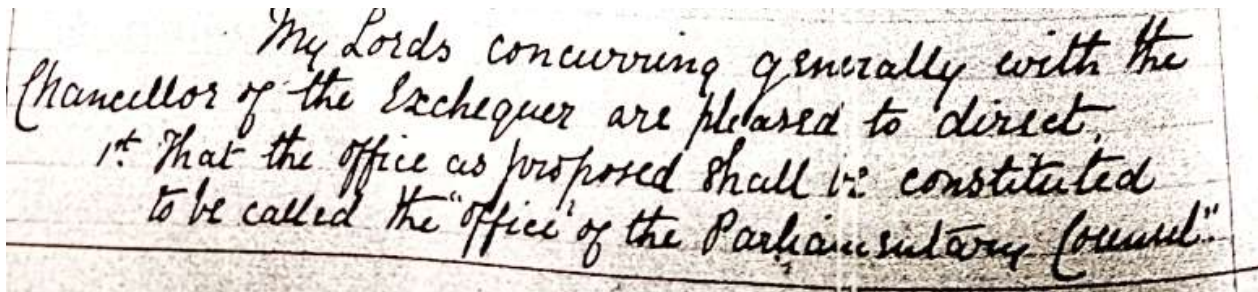 My Lords concurring generally with the
Chancellor of the Exchequer are pleased to direct,
1st. That the office as proposed shall be constituted
to be called the "office" of the Parliamentary Counsel."